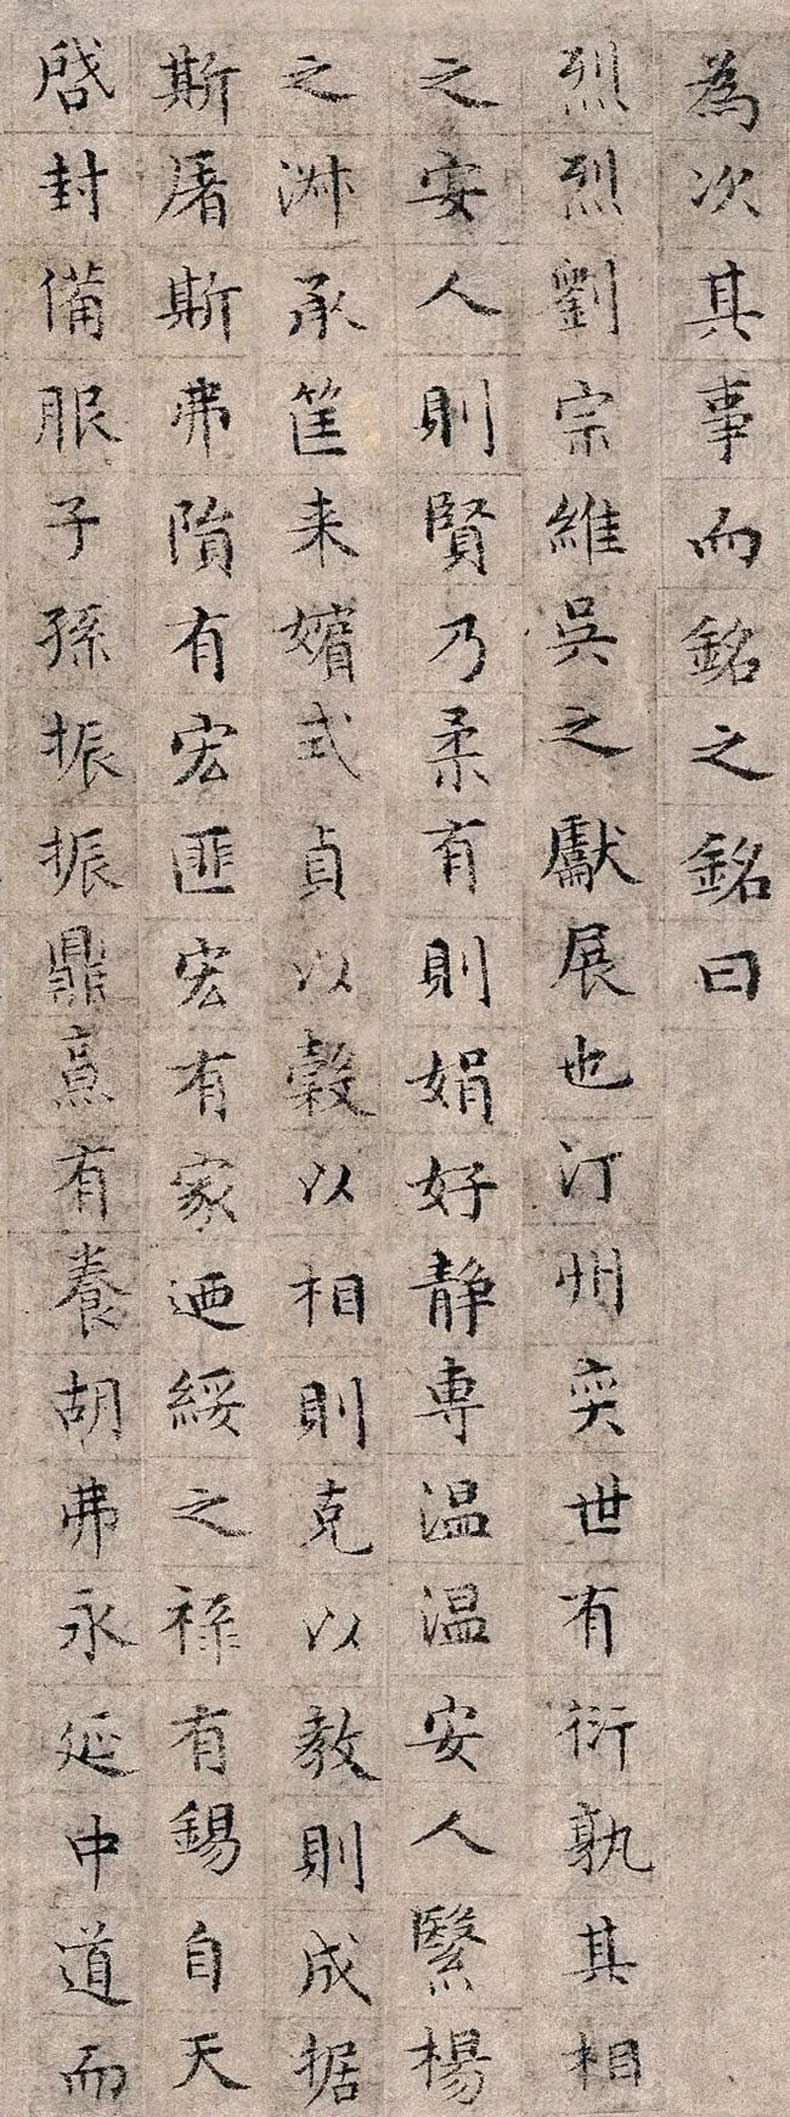 為次其事而銘之銘曰
烈烈劉宗維吳之獻展也汀州奕世有衍孰其相
之安人則賢乃柔有則娟好静専温温安人繄楊
之淋承筐来嬪式貞以穀以相則克以教則成据
斯屠斯弗隕有宏匪宏有家迺綏之祿有錫自天
啓封備服子孫振振鼎烹有養胡弗永延中道而